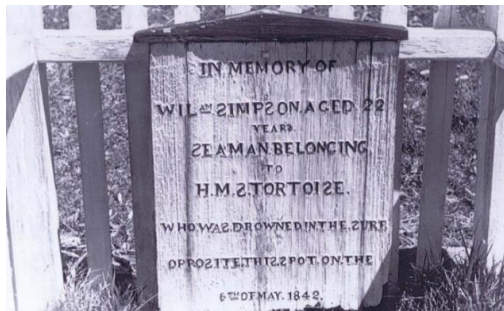 IN MEMORY OF
WILAM SIMPSON. AGED 22
YEARS.
SEAMAN BELONGING
TO
H.M.S TORTOISE.
WHO WAS DROWNED IN THE SURF
OPPOSITE THIS SPOT. ON THE
6TH OF MAY. 1842.